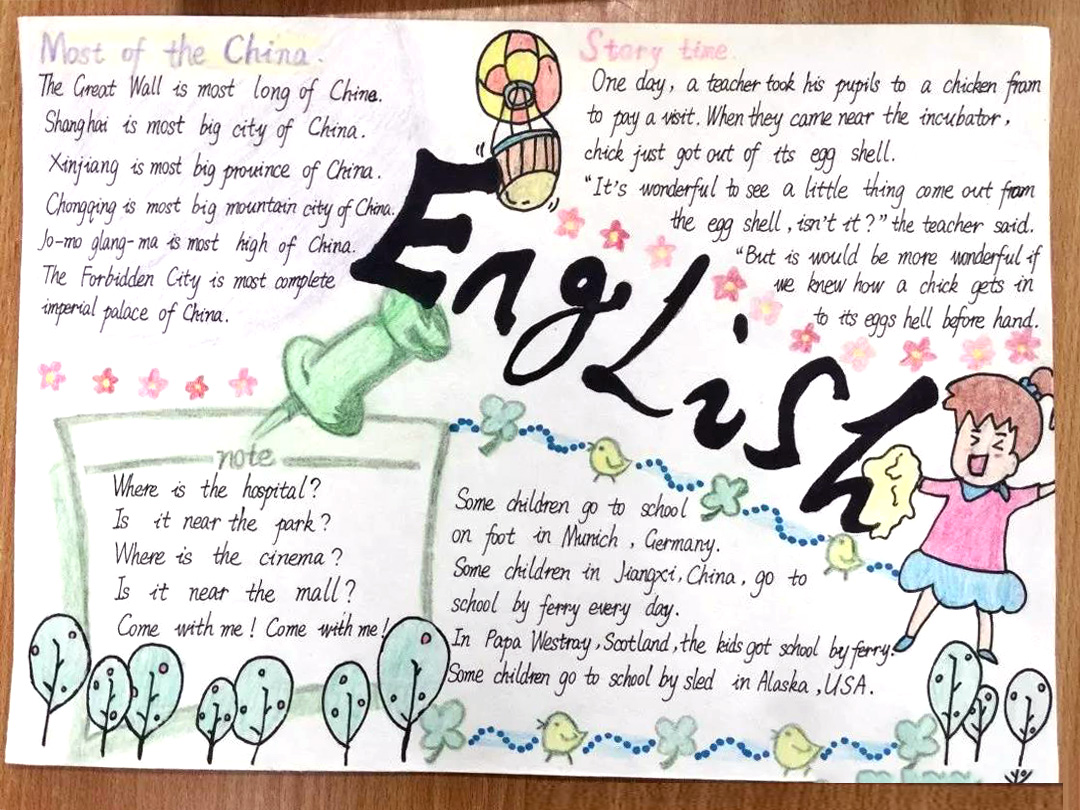 Most of the China.
The Great Wall is most long of China.
Shanghai is most big city of China.
Xinjiang is most big province of China.
Chongqing is most big mountain city of China.
Jo-mo glang-ma is most high of China.
The Forbidden City is most complete
imperial palace of China.
English
Story time.
One day, a teacher took his pupils to a chicken fram
to pay a visit. When they came near the incubator,
chick just got out of its egg shell.
"It's wonderful to see a little thing come out from
the egg shell, isn't it?" the teacher said.
"But is would be more wonderful if
we knew how a chick gets in
to its eggs hell before hand.
note
Where is the hospital?
Is it near the park?
Where is the cinema?
Is it near the mall?
Come with me! Come with me!
Some children go to school
on foot in Munich, Germany.
Some children in Jiangxi, China, go to
school by ferry every day.
In Papa Westray, Scotland, the kids got school by ferry.
Some children go to school by sled in Alaska, USA.